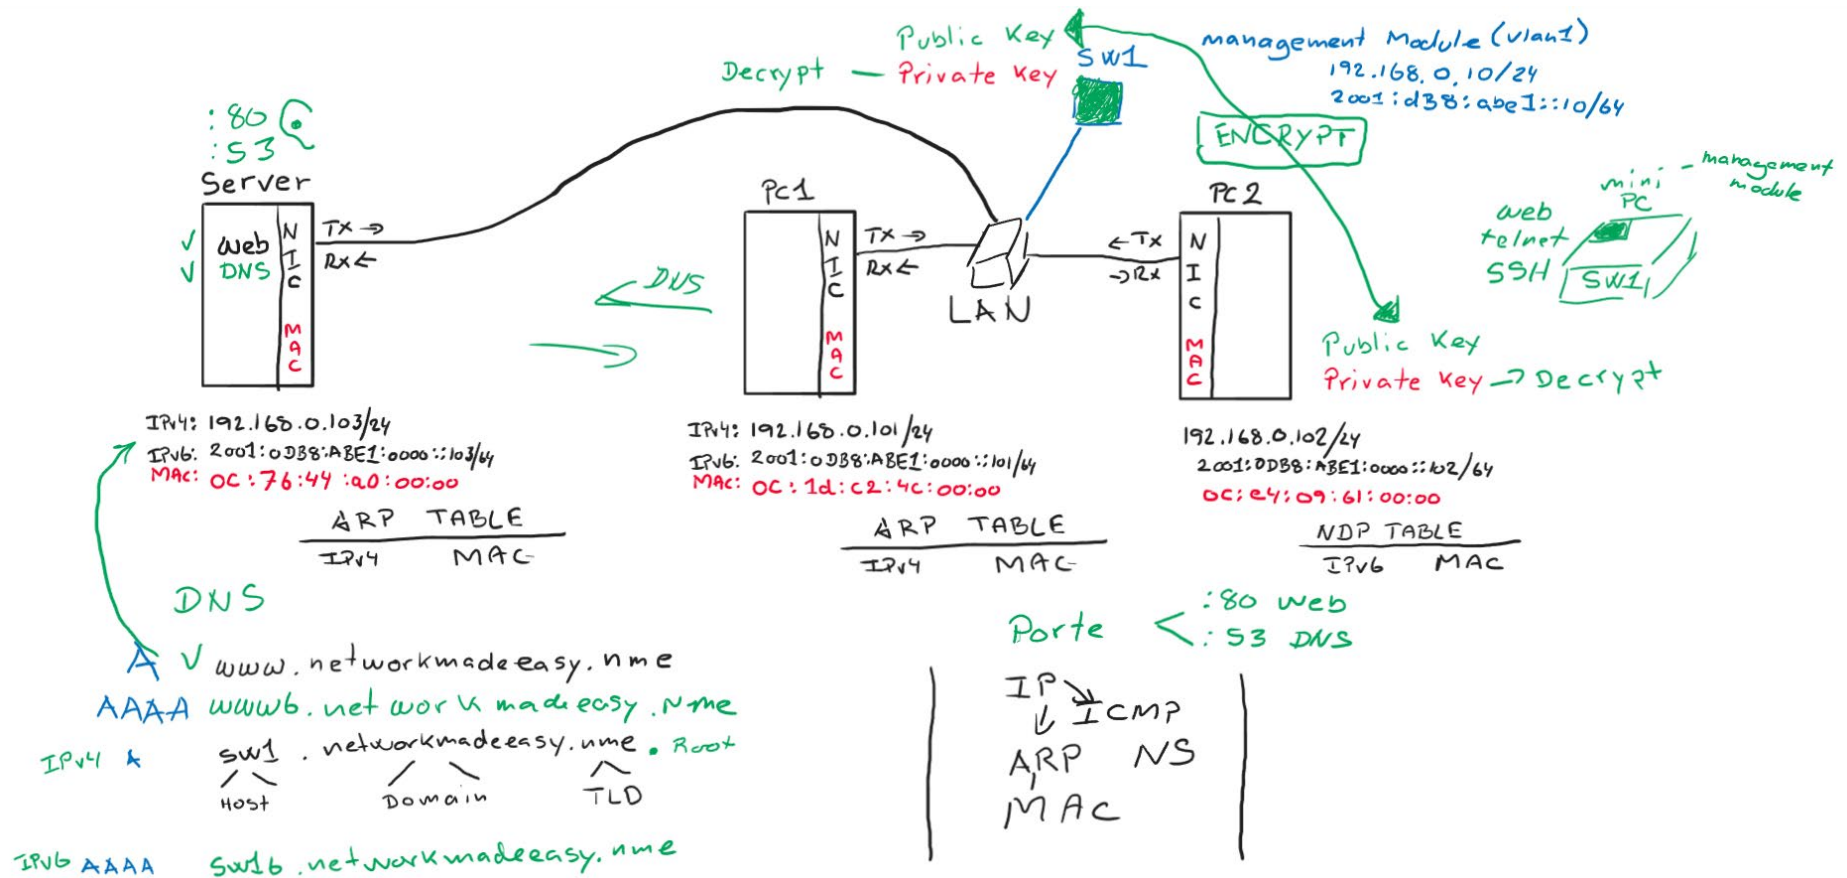 Public Key
Decrypt — Private Key
SW1
management Module (vlan1)
192.168.0.10/24
2001:d38:abe1::10/64
ENCRYPT
:80
:53
Server
web
DNS
NIC
MAC
TX →
RX ←
DNS
PC1
NIC
MAC
TX →
RX ←
LAN
PC2
← TX
→ RX
NIC
MAC
mini PC - management module
web
telnet
SSH
SW1
Public Key
Private Key → Decrypt
IPv4: 192.168.0.103/24
IPv6: 2001:0DB8:ABE1:0000::103/64
MAC: 0C:76:44:a0:00:00
ARP TABLE
IPv4 MAC
IPv4: 192.168.0.101/24
IPv6: 2001:0DB8:ABE1:0000::101/64
MAC: 0C:1d:c2:4c:00:00
ARP TABLE
IPv4 MAC
192.168.0.102/24
2001:0DB8:ABE1:0000::102/64
0C:e4:09:61:00:00
NDP TABLE
IPv6 MAC
DNS
A V www.networkmadeeasy.nme
AAAA www6.networkmadeeasy.nme
IPv4 A sw1.networkmadeeasy.nme. Root
Host Domain TLD
IPv6 AAAA sw16.networkmadeeasy.nme
Porte < :80 web
:53 DNS
IP
ICMP
ARP NS
MAC